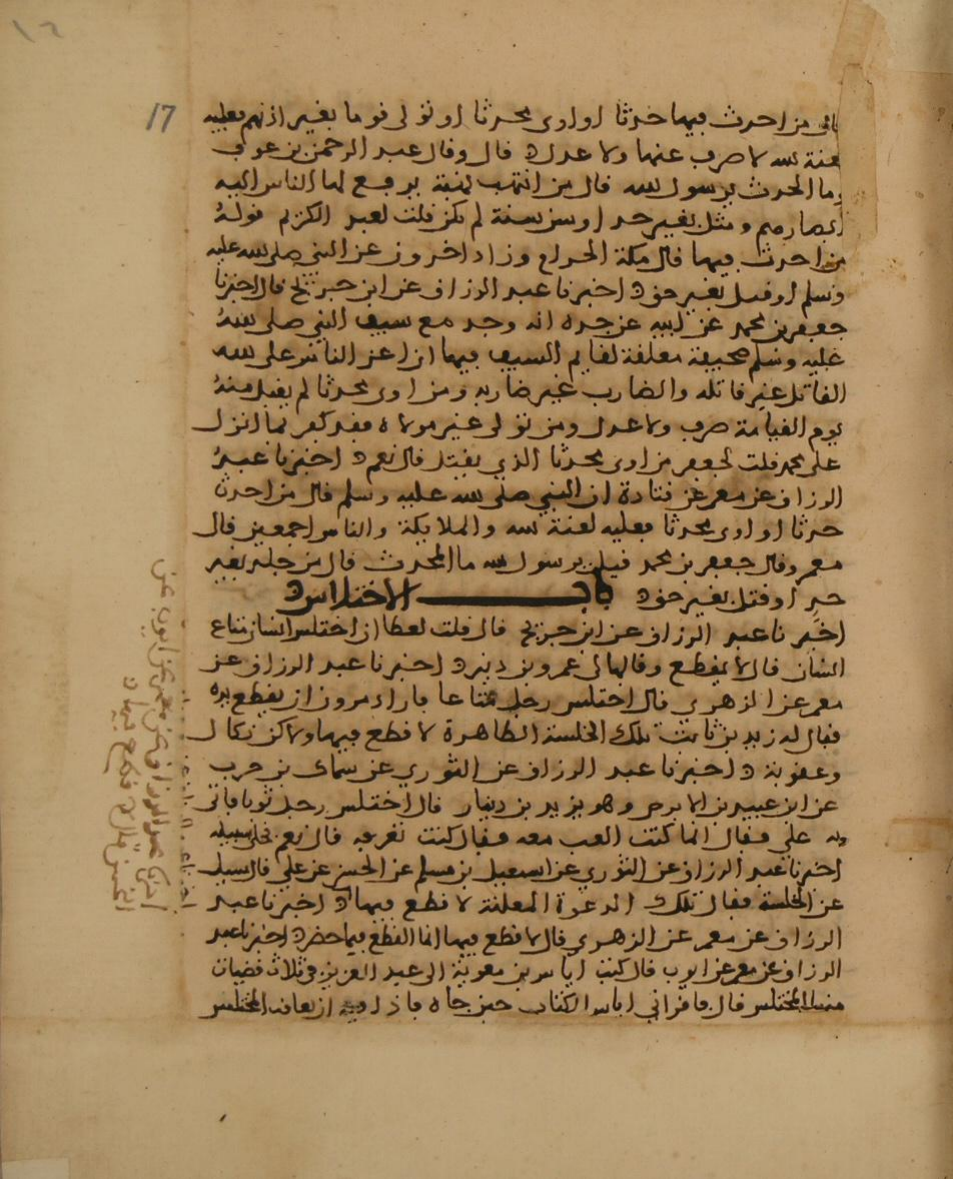 ١٦
17
من احدث فيها حدثا او اوى محدثا او تولى قوما بغير اذنهم فعليه
لعنة الله لا صرف عنها ولا عدل قال وقال عبد الرحمن بن عوف
وما الحدث يرسول الله قال من انتهب نهبة يرفع لها الناس اليه
ابصارهم ومثل بغير حد او سن سنة لم تكن قلت لعبد الكريم قوله
من احدث فيها قال مكة الحرام وزاد اخرون عن النبي صلى الله عليه
وسلم او قتل بغير حق اخبرنا عبد الرزاق عن ابن جريج قال اخبرنا
جعفر بن محمد عن ابيه عن جده انه وجد مع سيف النبي صلى الله
عليه وسلم صحيفة معلقة لقايم السيف فيها ان اعز الناس على الله
القاتل غير قاتله والضارب غير ضاربه ومن اوى محدثا لم يقبل منه
يوم القيامة صرف ولا عدل ومن تولى غير مولاه فقد كفر بما انزل
على محمد قلت لجعفر من اوى محدثا الذي يقتل قال نعم اخبرنا عبد
الرزاق عن معمر عن قتادة ان النبي صلى الله عليه وسلم قال من احدث
حدثا او اوى محدثا فعليه لعنة الله والملايكة والناس اجمعين قال
معمر وقال جعفر بن محمد قيل يرسول الله ما المحدث قال من جلد بغير
حد او قتل بغير حق باب الاختلاس
اخبرنا عبد الرزاق عن ابن جريج قال قلت لعطا ان اختلس انسان متاع
انسان قال لا يقطع وقالها لي عمرو بن دينر اخبرنا عبد الرزاق عن
معمر عن الزهري قال اختلس رجل متاعا فاراد مروان ان يقطع يده
فقال له زيد بن ثابت تلك الخلسة الظاهرة لا قطع فيها ولاكن نكال
وعقوبة اخبرنا عبد الرزاق عن الثوري عن سماك بن حرب
عن ابن عبيد بن الابرص وهو يزيد بن دينار قال اختلس رجل ثوبا فاتي
به علي فقال انما كنت العب معه فقال كنت تعرفه قال نعم فخلى سبيله
اخبرنا عبد الرزاق عن الثوري عن اسمعيل بن مسلم عن الحسن عن علي قال سيل
عن الخلسة فقال تلك الدعرة المعلنة لا قطع فيها اخبرنا عبد
الرزاق عن معمر عن الزهري قال لا قطع فيها انما القطع فيما حضر اخبرنا عبد
الرزاق عن معمر عن ايوب قال كتب اياس بن معوية الى عبد العزيز في ثلاث قضيات
منها المختلس قال فاقراني اياس الكتاب حين جاه فاذا فيه ان يعاقب المختلس
اخبرنا عبد الرزاق عن معمر عن ايوب عن
الحسن قال لا قطع فيها